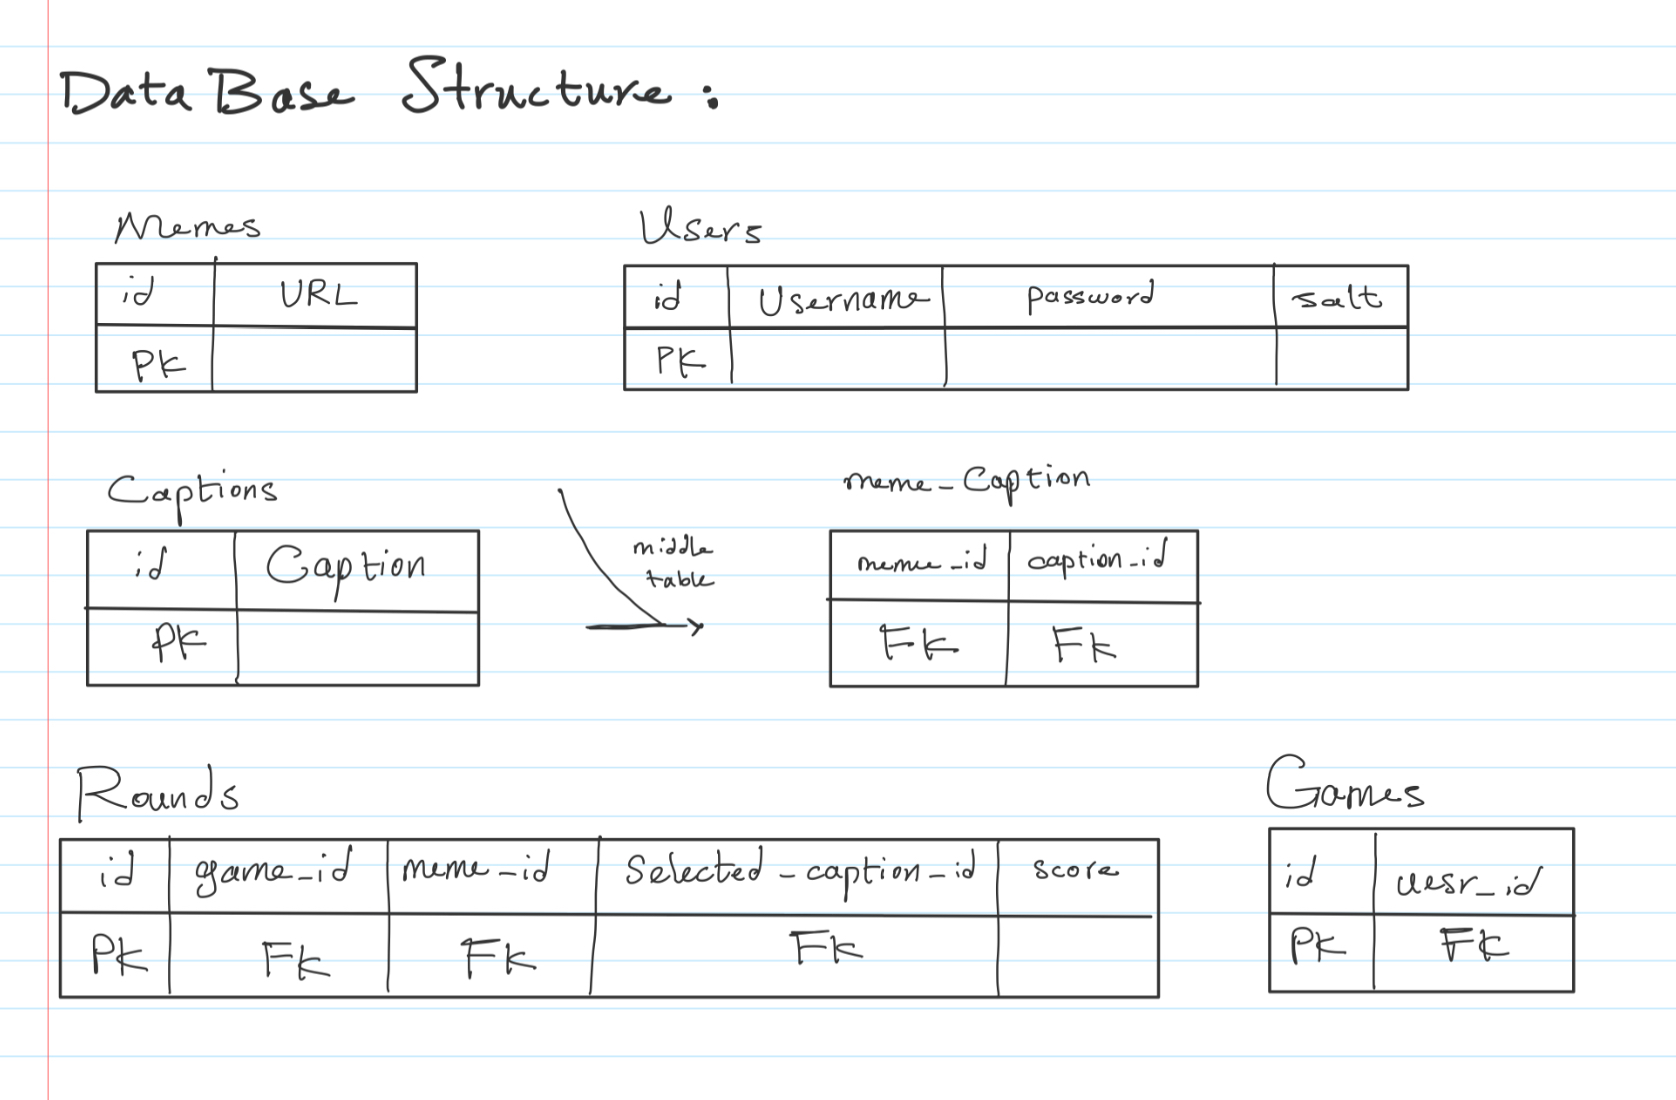 Data Base Structure :
Memes
id URL
PK
Users
id Username password salt
PK
Captions
id Caption
PK
middle
table
meme_Caption
meme_id caption_id
FK FK
Rounds
id game_id meme_id Selected_caption_id score
PK FK FK FK
Games
id uesr_id
PK FK